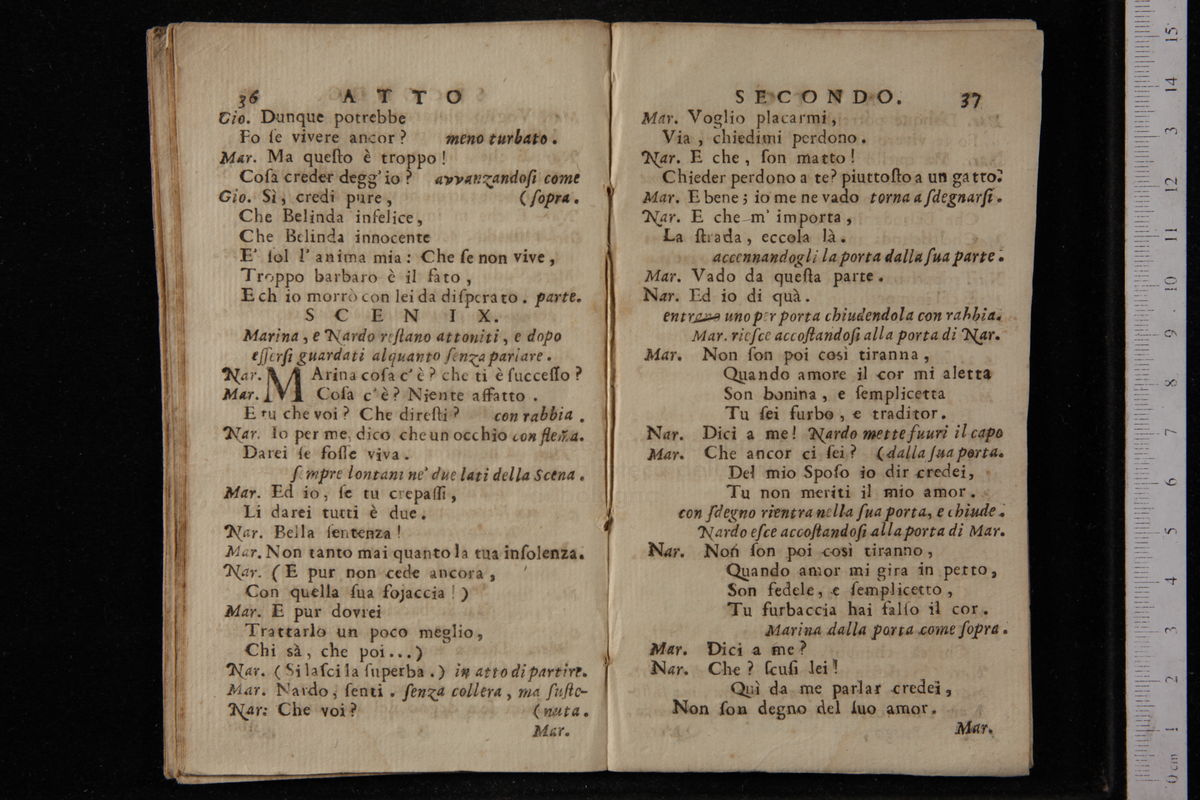 36 ATTO
Gio. Dunque potrebbe
Fo ſe vivere ancor? meno turbato.
Mar. Ma queſto è troppo!
Coſa creder degg'io? avvanzandoſi come
Gio. Sì, credi pure, (ſopra.
Che Belinda infelice,
Che Belinda innocente
E' ſol l'anima mia: Che ſe non vive,
Troppo barbaro è il fato,
E ch io morrò con lei da diſperato. parte.
SCEN IX.
Marina, e Nardo reſtano attoniti, e dopo
eſſerſi guardati alquanto ſenza parlare.
Nar. MArina coſa c'è? che ti è ſucceſſo?
Mar. Coſa c'è? Niente affatto.
E tu che voi? Che direſti? con rabbia.
Nar. Io per me, dico che un occhio con flem̃a.
Darei ſe foſſe viva.
ſempre lontani ne' due lati della Scena.
Mar. Ed io, ſe tu crepaſſi,
Li darei tutti è due.
Nar. Bella ſentenza!
Mar. Non tanto mai quanto la tua inſolenza.
Nar. (E pur non cede ancora,
Con quella ſua fojaccia!)
Mar. E pur dovrei
Trattarlo un poco meglio,
Chi sà, che poi...)
Nar. (Si laſci la ſuperba.) in atto di partire.
Mar. Nardo, ſenti. ſenza collera, ma ſuſte-
Nar: Che voi? (nuta.
Mar.
SECONDO. 37
Mar. Voglio placarmi,
Via, chiedimi perdono.
Nar. E che, ſon matto!
Chieder perdono a te? piuttoſto a un gatto.
Mar. E bene; io me ne vado torna a ſdegnarſi.
Nar. E che m'importa,
La ſtrada, eccola là.
accennandogli la porta dalla ſua parte.
Mar. Vado da queſta parte.
Nar. Ed io di quà.
entrano uno per porta chiudendola con rabbia.
Mar. rieſce accoſtandoſi alla porta di Nar.
Mar. Non ſon poi così tiranna,
Quando amore il cor mi aletta
Son bonina, e ſemplicetta
Tu ſei furbo, e traditor.
Nar. Dici a me! Nardo mette fuori il capo
Mar. Che ancor ci ſei? (dalla ſua porta.
Del mio Spoſo io dir credei,
Tu non meriti il mio amor.
con ſdegno rientra nella ſua porta, e chiude.
Nardo eſce accoſtandoſi alla porta di Mar.
Nar. Non ſon poi così tiranno,
Quando amor mi gira in petto,
Son fedele, e ſemplicetto,
Tu furbaccia hai falſo il cor.
Marina dalla porta come ſopra.
Mar. Dici a me?
Nar. Che? ſcuſi lei!
Quì da me parlar credei,
Non ſon degno del ſuo amor.
Mar.
0 cm 1 2 3 4 5 6 7 8 9 10 11 12 13 14 15